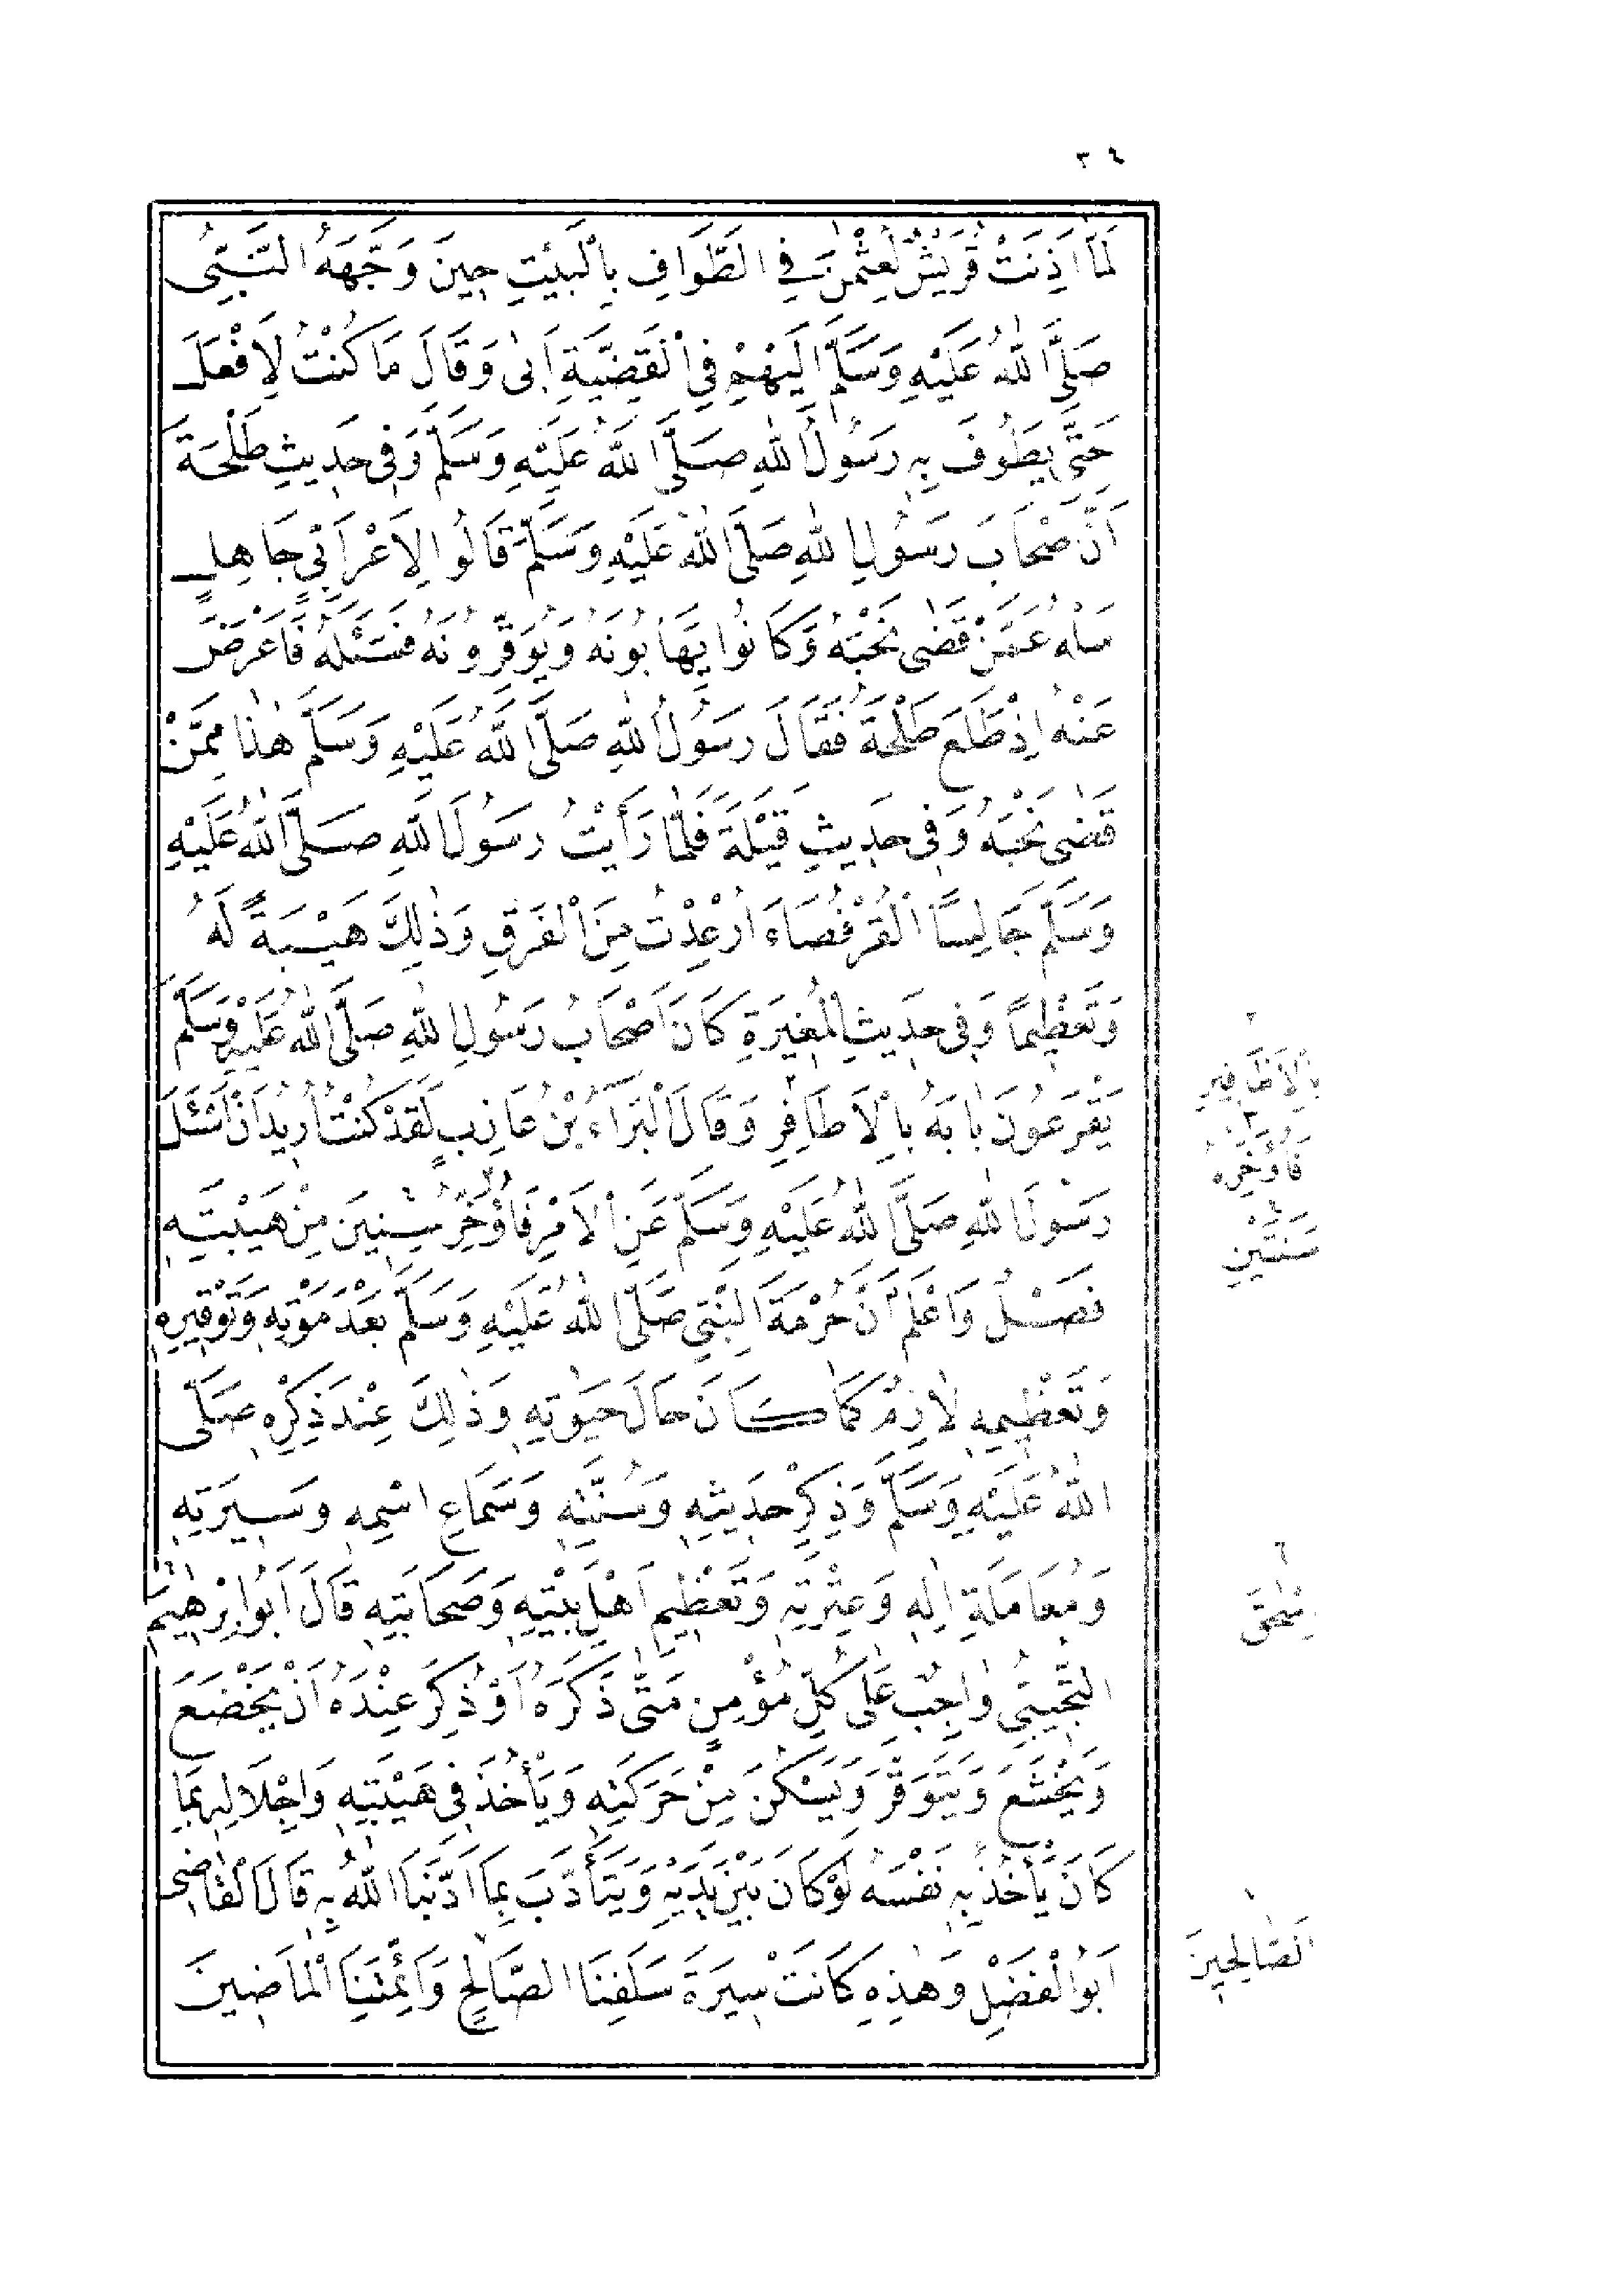 ٣٤
لَمَّا اَذِنَتْ قُرَيْشٌ لِعُثْمٰنَ فِي الطَّوَافِ بِالْبَيْتِ حِينَ وَجَّهَهُ النَّبِىُّ
صَلَّى اللّٰهُ عَلَيْهِ وَسَلَّمَ اِلَيْهِمْ فِى الْقَضِيَّةِ اَبٰى وَقَالَ مَا كُنْتُ لِاَفْعَلَ
حَتّٰى يَطُوفَ بِهِ رَسُولُ اللّٰهِ صَلَّى اللّٰهُ عَلَيْهِ وَسَلَّمَ وَفِى حَدِيثِ طَلْحَةَ
اَنَّ اَصْحَابَ رَسُولِ اللّٰهِ صَلَّى اللّٰهُ عَلَيْهِ وَسَلَّمَ قَالُوا لِاَعْرَابِىٍّ جَاهِلٍ
سَلْهُ عَمَّنْ قَضٰى نَحْبَهُ وَكَانُوا يَهَابُونَهُ وَيُوَقِّرُونَهُ فَسَئَلَهُ فَاَعْرَضَ
عَنْهُ اِذْ طَلَعَ طَلْحَةُ فَقَالَ رَسُولُ اللّٰهِ صَلَّى اللّٰهُ عَلَيْهِ وَسَلَّمَ هٰذَا مِمَّنْ
قَضٰى نَحْبَهُ وَفِى حَدِيثِ قَيْلَةَ فَلَمَّا رَأَيْتُ رَسُولَ اللّٰهِ صَلَّى اللّٰهُ عَلَيْهِ
وَسَلَّمَ جَالِسًا الْقُرْفُصَاءَ اُرْعِدْتُ مِنَ الْفَرَقِ وَذٰلِكَ هَيْبَةً لَهُ
وَتَعْظِيمًا وَفِى حَدِيثِ الْمُغِيرَةِ كَانَ اَصْحَابُ رَسُولِ اللّٰهِ صَلَّى اللّٰهُ عَلَيْهِ وَسَلَّمَ
يَقْرَعُونَ بَابَهُ بِالْاَظَافِرِ وَقَالَ الْبَرَاءُ بْنُ عَازِبٍ لَقَدْ كُنْتُ اُرِيدُ اَنْ اَسْئَلَ
رَسُولَ اللّٰهِ صَلَّى اللّٰهُ عَلَيْهِ وَسَلَّمَ عَنِ الْاَمْرِ فَاُؤَخِّرُ سِنِينَ مِنْ هَيْبَتِهِ
فَصْلٌ وَاعْلَمْ اَنَّ حُرْمَةَ النَّبِىِّ صَلَّى اللّٰهُ عَلَيْهِ وَسَلَّمَ بَعْدَ مَوْتِهِ وَتَوْقِيرِهِ
وَتَعْظِيمِهِ لَازِمٌ كَمَا كَانَ حَالَ حَيٰوتِهِ وَذٰلِكَ عِنْدَ ذِكْرِهِ صَلَّى
اللّٰهُ عَلَيْهِ وَسَلَّمَ وَذِكْرِ حَدِيثِهِ وَسُنَّتِهِ وَسَمَاعِ اسْمِهِ وَسِيرَتِهِ
وَمُعَامَلَةِ اٰلِهِ وَعِتْرَتِهِ وَتَعْظِيمِ اَهْلِ بَيْتِهِ وَصَحَابَتِهِ قَالَ اَبُو اِبْرٰهِيمَ
التُّجِيبِيُّ وَاجِبٌ عَلٰى كُلِّ مُؤْمِنٍ مَتٰى ذَكَرَهُ اَوْ ذُكِرَ عِنْدَهُ اَنْ يَخْضَعَ
وَيَخْشَعَ وَيَتَوَقَّرَ وَيَسْكُنَ مِنْ حَرَكَتِهِ وَيَأْخُذَ فِى هَيْبَتِهِ وَاِجْلَالِهِ بِمَا
كَانَ يَأْخُذُ بِهِ نَفْسَهُ لَوْ كَانَ بَيْنَ يَدَيْهِ وَيَتَأَدَّبَ بِمَا اَدَّبَنَا اللّٰهُ بِهِ قَالَ الْقَاضِى
اَبُو الْفَضْلِ وَهٰذِهِ كَانَتْ سِيرَةَ سَلَفِنَا الصَّالِحِ وَاَئِمَّتِنَا الْمَاضِينَ
٢
بِالْاَظَافِيرِ
٣
فَاُؤَخِّرُهُ
٤
سَنَتَيْنِ
٦
اِسْحٰقَ
١
الصَّالِحِينَ